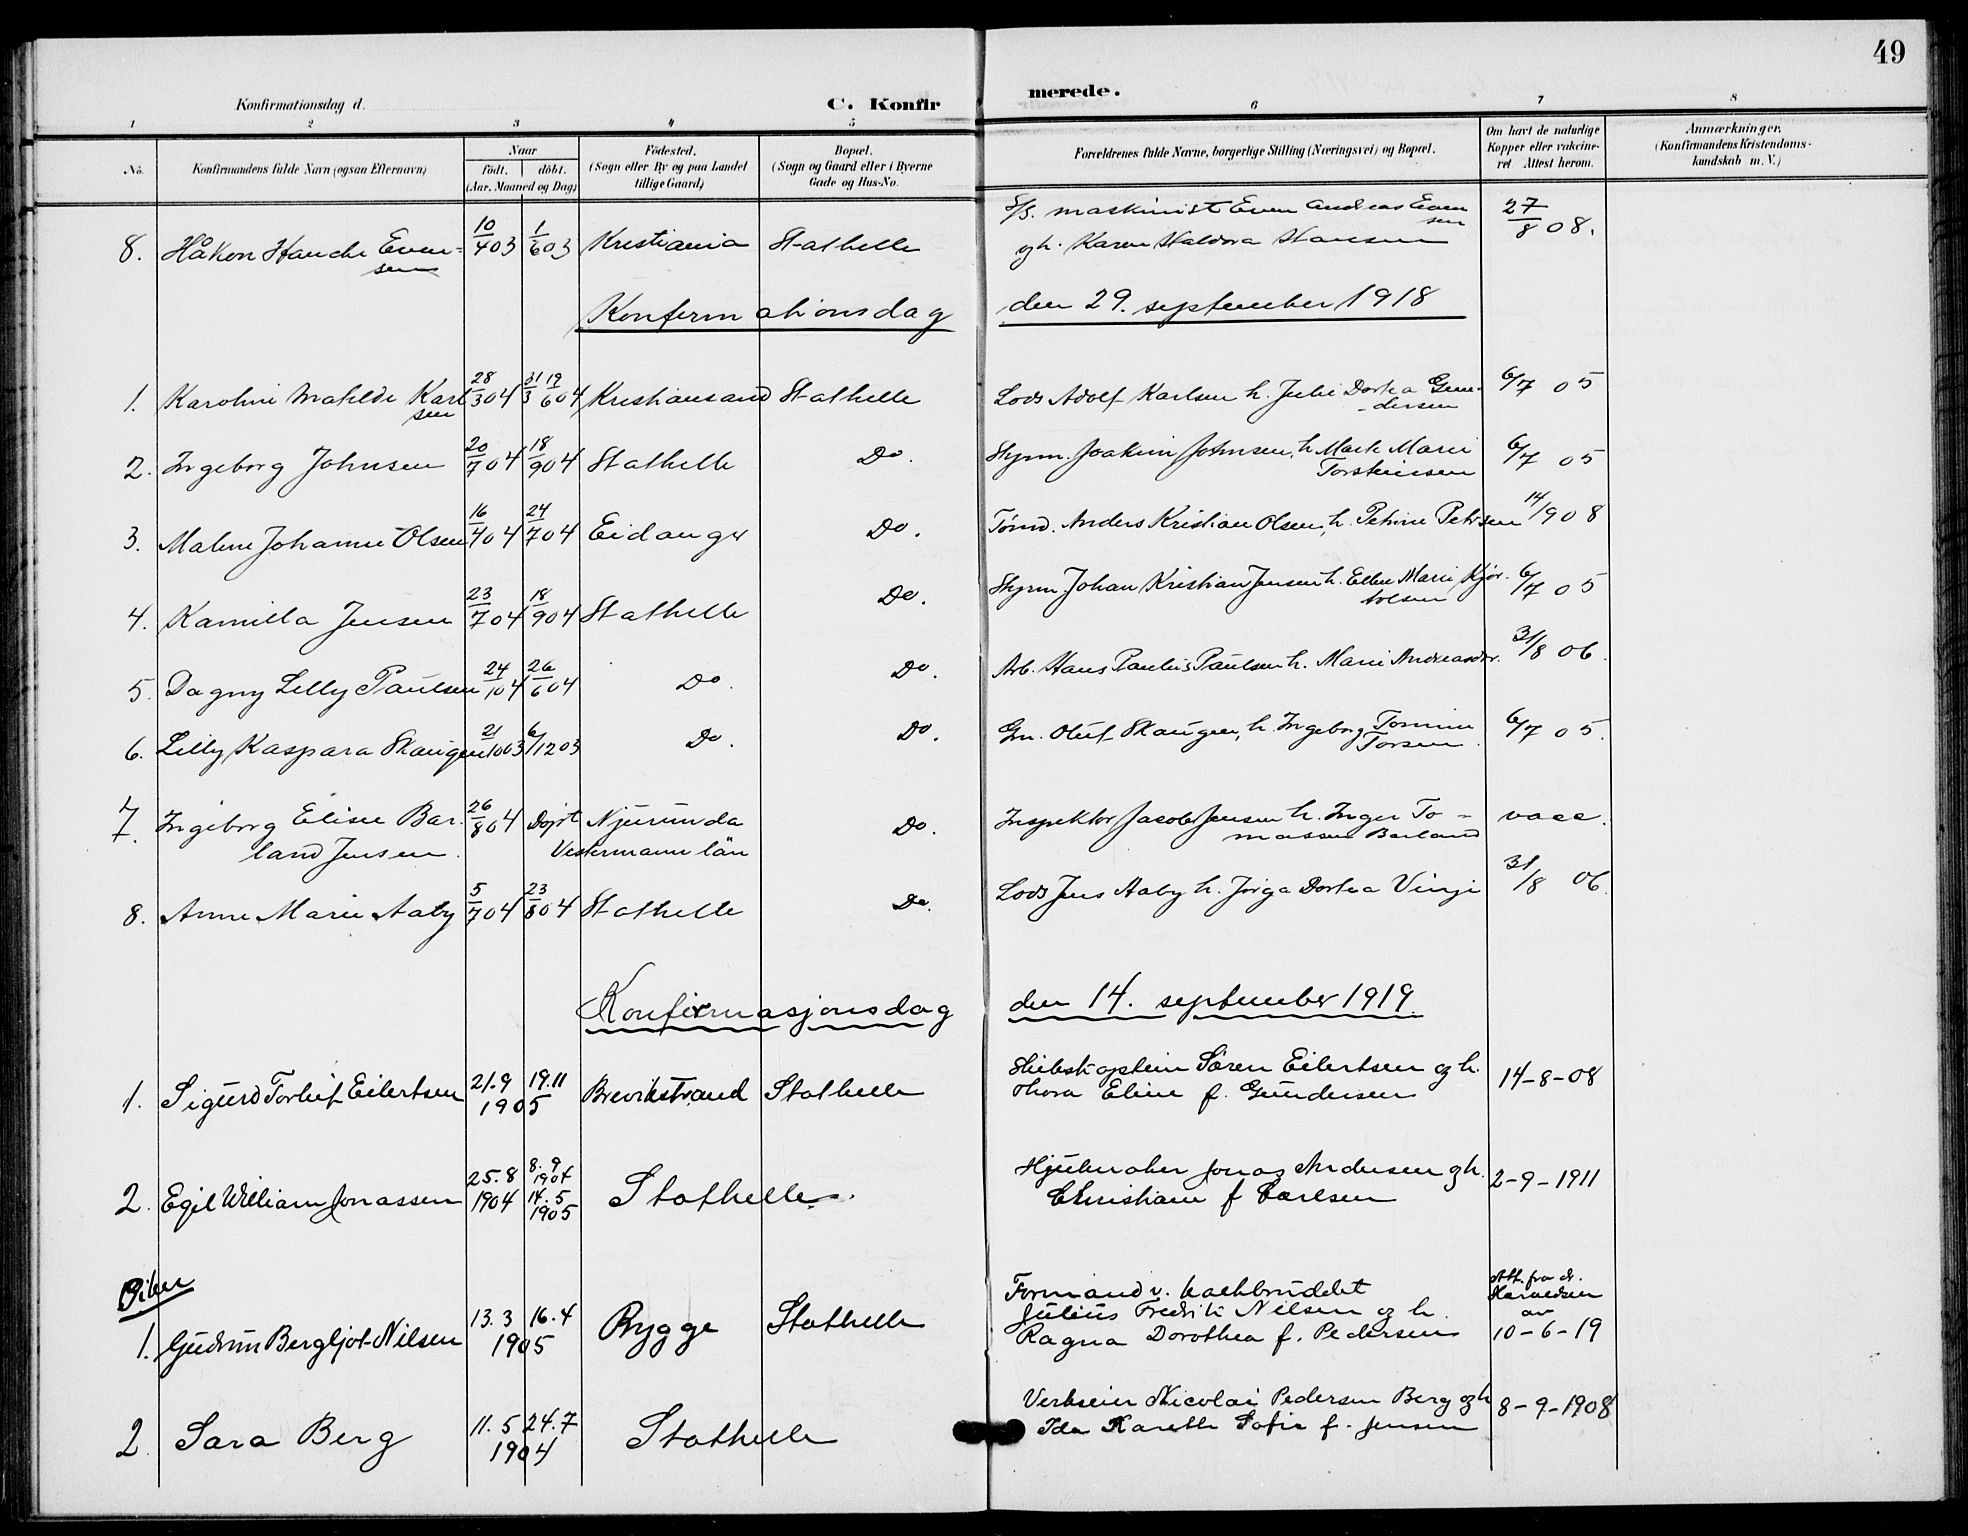 49
Konfirmationsdag d.
C. Konfirmerede.
1 2 3 4 5 6 7 8
No.
Konfirmandens fulde Navn (ogsaa Efternavn)
Naar
födt. döbt.
(Aar, Maaned og Dag)
Födested.
(Sogn eller By og paa Landet
tillige Gaard)
Bopæl.
(Sogn og Gaard eller i Byerne
Gade og Hus-No.
Forældrenes fulde Navne, borgerlige Stilling (Næringsvei) og Bopæl.
Om havt de naturlige
Kopper eller vakcine-
ret Attest herom.
Anmærkninger.
(Konfirmandens Kristendoms-
kundskab m. V.)
8. Håkon Hauche Even- 10/4 03 1/6 03 Kristiania Stathelle maskinist Even Andreas Even 27/8 08.
sen sen
og h. Karen Haldora Hansen
Konfermationsdag den 29. september 1918
1. Karoline Matilde Karl 28/3 04 31/3 19/6 04 Kristiansand Stathelle Lods Adolf Karlsen h. Julie Dortea Gun- 6/7 05
sen -dersen
2. Ingeborg Johnsen 20/7 04 18/9 04 Stathelle Do. Styrm. Joakim Johnsen, h. Marte Marie 6/7 05
Torstensen
3. Malene Johanne Olsen 16/4 04 24/7 04 Eidanger Do. Tømd. Anders Kristian Olsen, h. Petrine Petersen 14/9 08
4. Kamilla Jensen 23/7 04 18/9 04 Stathelle Do. Styrm. Johan Kristian Jensen h. Ellen Marie Kjør- 6/7 05
5. Dagny Lilly Paulsen 24/1 04 26/6 04 Do. Do. Arb. Hans Paulus Paulsen h. Marie Andreasdr. 31/8 06.
6. Lilly Kaspara Skaugen 21/10 03 6/12 03 Do. Do. Gm. Oluf Skaugen, h. Ingeborg Tomine 6/7 05.
Torsen.
7. Ingeborg Elise Bar- 26/8 04 Døpt Njurunda Do. Inspektør Jacob Jensen h. Inger To- vacc.
land Jensen. Vestermann län massen Barland
8. Anne Marie Aaby 5/7 04 23/8 04 Stathelle Do. Lods Jens Aaby h. Jørga Dortea Vinje 31/8 06.
Konfirmasjonsdag den 14. september 1919.
1. Sigurd Torleif Eilertsen 21.9 19.11 Brevikstrand Stathelle Skibskaptein Søren Eilertsen og h. 14-8-08
1905 Thora Eline f. Gundersen
2. Egil William Jonassen 25.8 1904 8.9 1904 14.5 1905 Stathelle. Hjulmaker Jonas Andersen og h. 2-9-1911
Christiane f Carlsen
Piker
1. Gudrun Bergljot Nilsen 13.3 16.4 Rygge Stathelle Formand v. kalkbruddet Att. fra dr.
1905 Julius Fredrik Nilsen og h. av
Ragna Dorothea f. Pedersen 10-6-19
2. Sara Berg 11.5 24.7 Stathelle Verkseier Nicolai Pedersen Berg og h 8-9-1908
1904 Ida Karethe Sofie f. Jensen